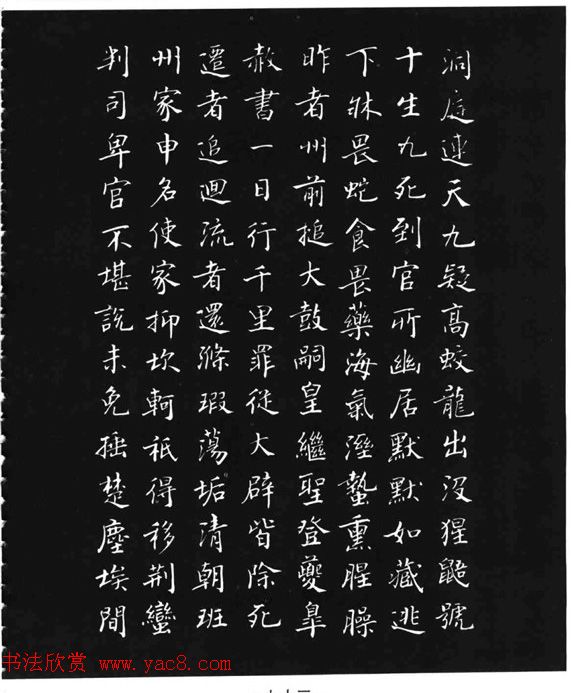 洞庭連天九疑高蛟龍出没猩鼯號
十生九死到官所幽居默默如藏逃
下牀畏蛇食畏藥海氣溼蟄熏腥臊
昨者州前搥大鼓嗣皇繼聖登夔皐
赦書一日行千里罪從大辟皆除死
遷者追迴流者還滌瑕蕩垢清朝班
州家申名使家抑坎軻祇得移荆蠻
判司卑官不堪說未免捶楚塵埃間
书法欣赏 www.yac8.com